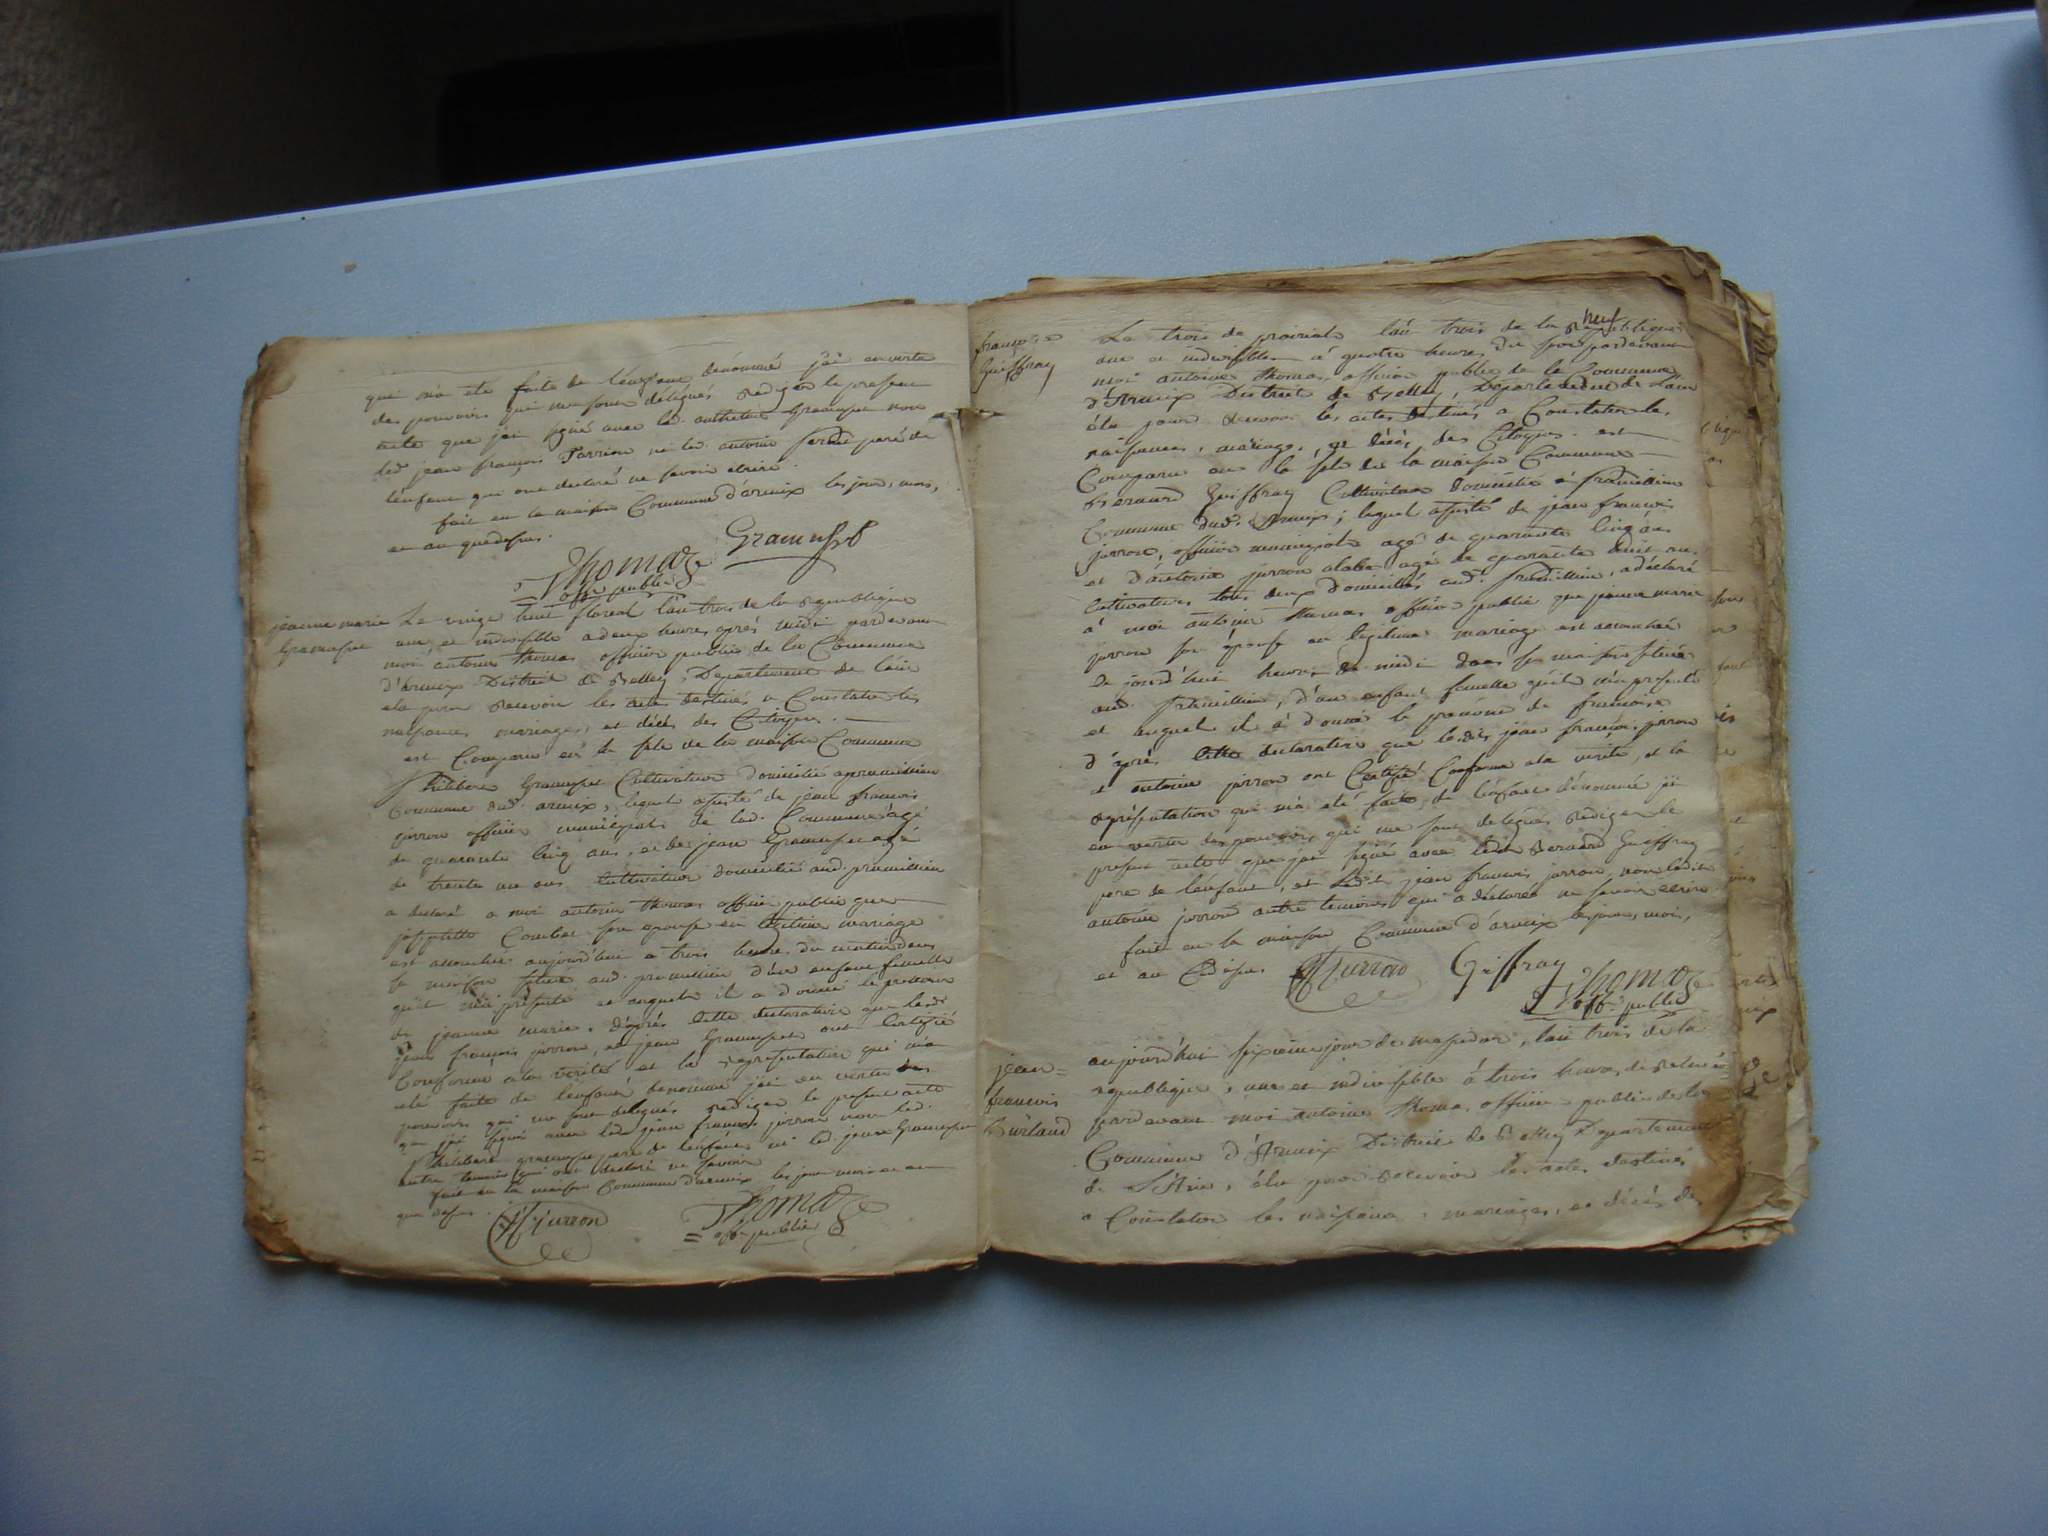 qui m'a été faite de l'enfant dénommé j'ai en vertu
des pouvoirs qui me sont délégués rédigé le présent
acte que j'ai signé avec led. Gramusset non
led. jean françois ni led. antoine père de
l'enfant qui ont déclaré ne savoir écrire.
fait en la maison Commune d'armix les jour, mois,
et an que dessus.
Gramusset
Thomas
off. public
jeanne marie
Gramusset
Le vingt huit floréal l'an trois de la République
une et indivisible a deux heures après midi pardevant
moi antoine thomas officier public de la Commune
d'armix District de Belley, Département de l'ain
élu pour recevoir les actes destinés a Constater les
naissances mariages, et décès des Citoyens.
est Comparu en la sale de la maison Commune
Philibert Gramusset Cultivateur domicilié a premillieu
Commune dud. armix, lequel assisté de jean francois
jurron officier municipal de lad. Commune agé
de quarante cinq ans, et de jean Gramusset agé
de trente un ans Cultivateur domicilié aud. premillieu
a déclaré a moi antoine thomas officier public que
Combet son epouse en légitime mariage
est accouchée aujourd'hui a trois heures du matin dans
sa maison située aud. premillieu d'un enfant femelle
qu'il m'a présenté et auquel il a donné le prénom
de jeanne marie. d'après cette déclaration que lesd.
jean françois jurron, et jean Gramusset ont Certifié
Conforme a la vérité et la représentation qui m'a
été faite de l'enfant dénommé j'ai en vertu des
pouvoirs qui me sont délégués rédigé le présent acte
que j'ai signé avec led. jean francois jurron non led.
Philibert gramusset père de l'enfant ni led. jean Gramusset
autre temoin qui ont déclaré ne savoir
fait en la maison Commune d'armix les jour mois et an
que dessus.
jurron
Thomas
off. public
neuf
françoise
Guiffray
Le trois de prairial l'an trois de la République
une et indivisible a quatre heures du soir pardevant
moi antoine thomas, officier public de la Commune
d'Armix District de Belley, Département de l'ain
élu pour recevoir les actes destinés a Constater les
naissances, mariages, et décès des Citoyens. est
Comparu en la sale de la maison Commune
Bernard Guiffray Cultivateur domicilié a premillieu
Commune dud. Armix; lequel assisté de jean françois
jurron, officier municipal agé de quarante cinq ans
et d'antoine jurron agé de quarante huit ans
Cultivateurs tous deux domiciliés aud. premillieu, a déclaré
a moi antoine thomas officier public que jeanne marie
jurron son épouse en légitime mariage est accouchée
ce jourd'hui heure de midi dans sa maison située
aud. premillieu, d'un enfant femelle qu'il m'a présenté
et auquel il a donné le prénom de françoise
d'après cette déclaration que lesdits jean françois jurron
et antoine jurron ont Certifié Conforme a la vérité, et la
représentation qui m'a été faite de l'enfant dénommé j'ai
en vertu des pouvoirs qui me sont délégués rédigé le
présent acte que j'ai signé avec ledit Bernard Guiffray
père de l'enfant, et ledit jean francois jurron, non ledit
antoine jurron autre temoin qui a déclaré ne savoir écrire
fait en la maison Commune d'armix les jour, mois,
et an dessus
jurron
Giffray
Thomas
off. public
jean=
francois
Burlaud
aujourd'hui sixieme jour de messidor, l'an trois de la
république, une et indivisible a trois heures de relevée
pardevant moi antoine thomas officier public de la
Commune d'Armix District de Belley Département
de l'Ain, élu pour recevoir les actes destinés
a Constater les naissances, mariages, et décès des